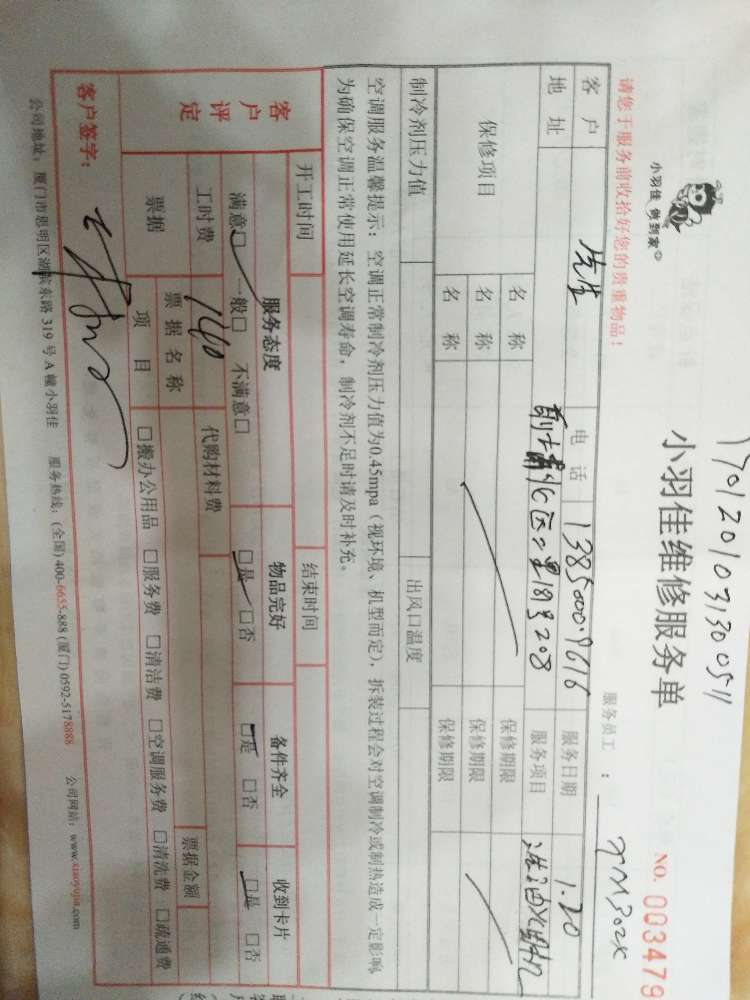 1701201031300511
小羽佳 做到家
小羽佳维修服务单
NO. 003479
请您于服务前收拾好您的贵重物品！
服务员工：XM302K
客户 先生 电话 13850009616 服务日期 1.20
地址 服务项目
保修项目 名称 保修期限
名称 保修期限
名称 保修期限
制冷剂压力值 出风口温度
空调服务温馨提示：空调正常制冷剂压力值为0.45mpa（视环境、机型而定），拆装过程会对空调制冷或制热造成一定影响
为确保空调正常使用延长空调寿命，制冷剂不足时请及时补充。
开工时间 结束时间
客户评定 服务态度 物品完好 备件齐全 收到卡片
满意□ 一般□ 不满意□ □是 □否 □是 □否 □是 □否
工时费 140 代购材料费
票据 票据名称 票据金额
项目 □搬办公用品 □服务费 □清洁费 □空调服务费 □清洗费 □疏通费
客户签字：
公司地址：厦门市思明区湖滨东路 319 号 A 幢小羽佳 服务热线：(全国) 400-6655-888 (厦门) 0592-5178888 公司网站：www.xiaoyujia.com